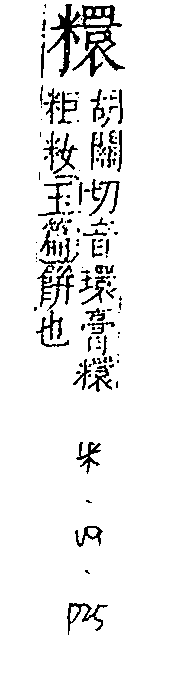 糫
胡關切音環膏糫
粔籹玉篇餠也
米.四.
P25